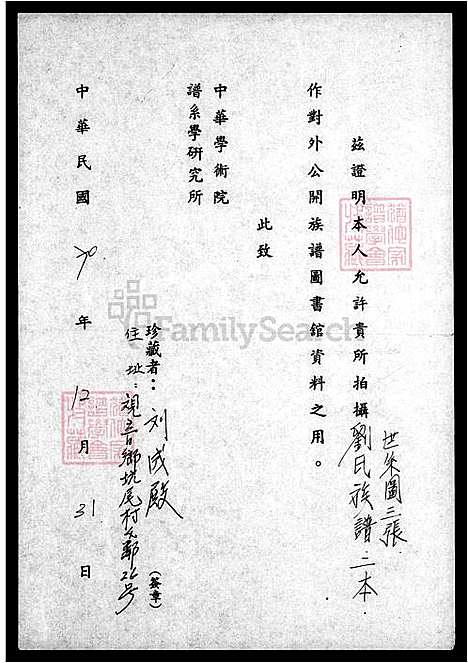 茲證明本人允許貴所拍攝劉氏族譜二本
世系圖三張
作對外公開族譜圖書館資料之用。
此致
中華學術院
譜系學研究所
珍藏者：刘成殿
住址：观音鄉坑尾村 鄰26号
(簽章)
中華民國70年12月31日
FamilySearch